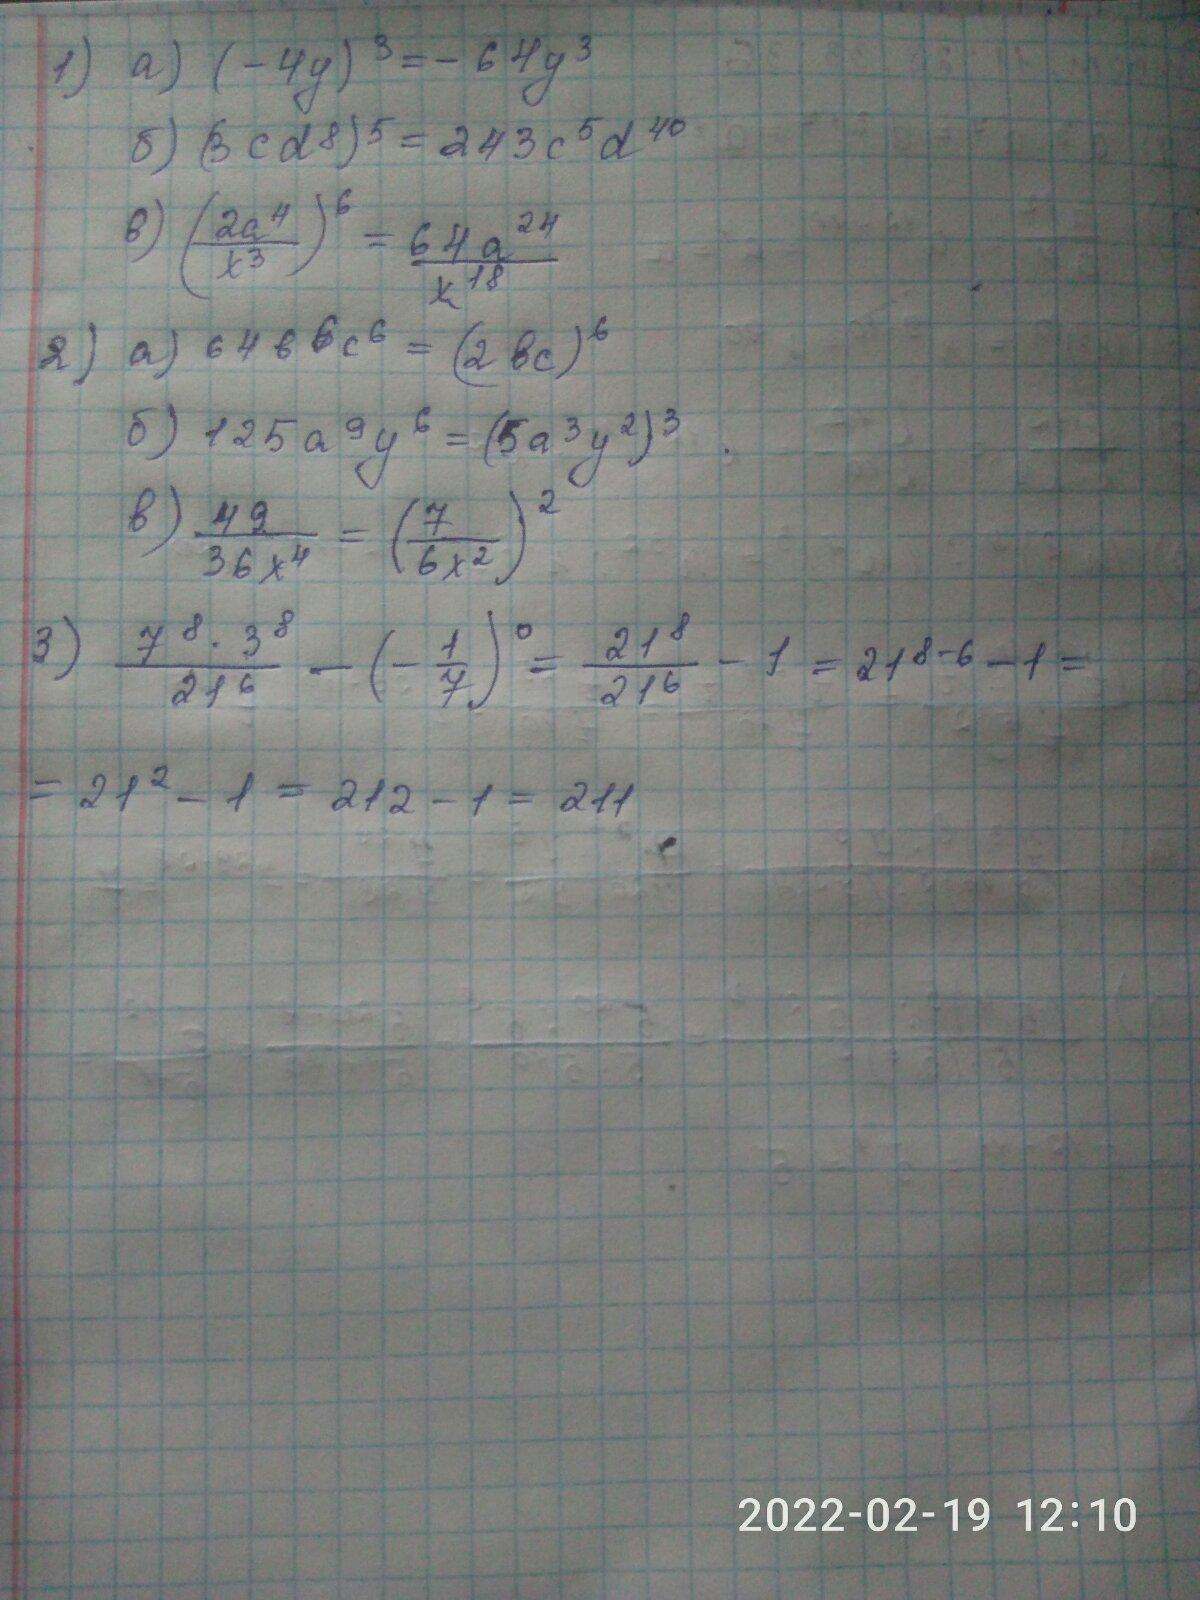 1) а) (-4y)³ = -64y³
б) (3cd⁸)⁵ = 243c⁵d⁴⁰
в) (2a⁴/x³)⁶ = 64a²⁴/x¹⁸
2) а) 64в⁶c⁶ = (2вc)⁶
б) 125a⁹y⁶ = (5a³y²)³
в) 49/36x⁴ = (7/6x²)²
3) 7⁸·3⁸/21⁶ - (-1/7)⁰ = 21⁸/21⁶ - 1 = 21⁸⁻⁶ - 1 =
= 21² - 1 = 212 - 1 = 211
2022-02-19 12:10